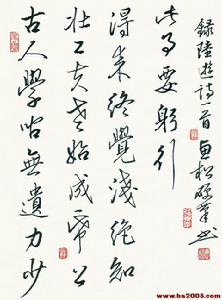 古人學問無遺力少
壯工夫老始成帋上
得來終覺淺絕知
此事要躬行
録陸游詩一首
www.bs2005.com